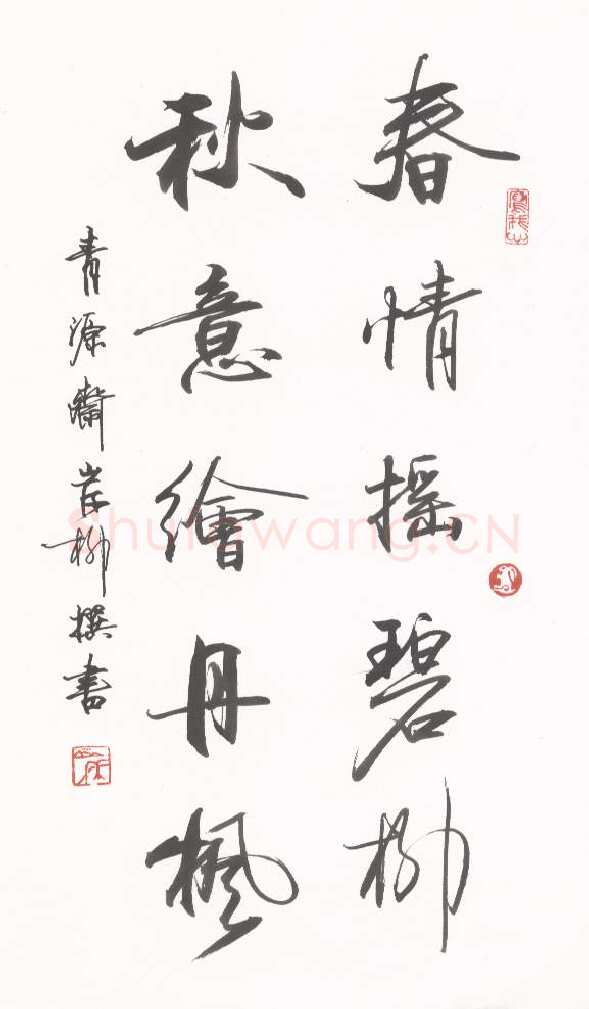 春情摇碧柳
秋意繪丹楓
青源齋岸柳撰書
Shufawang.CN